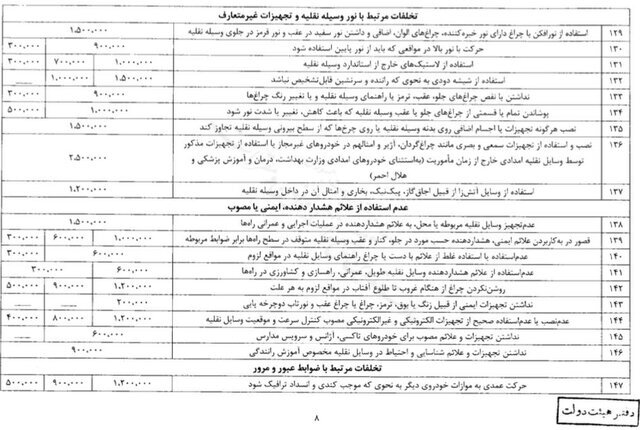 تخلفات مرتبط با نور وسیله نقلیه و تجهیزات غیرمتعارف
۱۲۹ استفاده از نورافکن یا چراغ دارای نور خیره‌کننده، چراغ‌های الوان، اضافی و داشتن نور سفید در عقب و نور قرمز در جلوی وسیله نقلیه ۱.۵۰۰.۰۰۰
۱۳۰ حرکت با نور بالا در مواقعی که باید از نور پایین استفاده شود ۹۰۰.۰۰۰ ۳۰۰.۰۰۰
۱۳۱ استفاده از لاستیک‌های خارج از استاندارد وسیله نقلیه ۱.۰۰۰.۰۰۰ ۷۰۰.۰۰۰ ۳۰۰.۰۰۰
۱۳۲ استفاده از شیشه دودی به نحوی که راننده و سرنشین قابل‌تشخیص نباشد ۱.۵۰۰.۰۰۰ ۱.۰۰۰.۰۰۰
۱۳۳ نداشتن یا نقص چراغ‌های جلو، عقب، ترمز یا راهنمای وسیله نقلیه و یا تغییر رنگ چراغ‌ها ۹۰۰.۰۰۰ ۳۰۰.۰۰۰
۱۳۴ پوشاندن تمام یا قسمتی از چراغ‌های جلو یا عقب وسیله نقلیه که باعث کاهش، تغییر یا شدت نور شود ۱.۰۰۰.۰۰۰ ۵۰۰.۰۰۰
۱۳۵ نصب هرگونه تجهیزات یا اجسام اضافی روی بدنه وسیله نقلیه یا روی چرخ‌ها که از سطح بیرونی وسیله نقلیه تجاوز کند ۱.۵۰۰.۰۰۰
۱۳۶ نصب و استفاده از تجهیزات سمعی و بصری مانند چراغ‌گردان، آژیر و امثالهم در خودروهای غیرمجاز یا استفاده از تجهیزات مذکور
توسط وسایل نقلیه امدادی خارج از زمان مأموریت (به‌استثنای خودروهای امدادی وزارت بهداشت، درمان و آموزش پزشکی و ۲.۵۰۰.۰۰۰
هلال احمر)
۱۳۷ استفاده از وسایل آتش‌زا از قبیل اجاق‌گاز، پیک‌نیک، بخاری و امثال آن در داخل وسیله نقلیه ۱.۲۰۰.۰۰۰
عدم استفاده از علائم هشدار دهنده، ایمنی یا مصوب
۱۳۸ عدم‌تجهیز وسایل نقلیه مربوطه یا محل، به علائم هشداردهنده در عملیات اجرایی و عمرانی راه‌ها ۱.۵۰۰.۰۰۰
۱۳۹ قصور در به‌کاربردن علائم ایمنی، هشداردهنده حسب مورد در جلو، کنار و عقب وسیله نقلیه متوقف در سطح راه‌ها برابر ضوابط مربوطه ۱.۰۰۰.۰۰۰ ۶۰۰.۰۰۰ ۳۰۰.۰۰۰
۱۴۰ عدم‌استفاده یا استفاده غلط از علائم با دست یا چراغ راهنمای وسایل نقلیه در مواقع لزوم ۶۰۰.۰۰۰ ۳۰۰.۰۰۰
۱۴۱ عدم‌استفاده از علائم هشداردهنده وسایل نقلیه طویل، عمرانی، راهسازی و کشاورزی در راه‌ها ۶۰۰.۰۰۰ ۳۰۰.۰۰۰
۱۴۲ روشن‌نکردن چراغ از هنگام غروب تا طلوع آفتاب در مواقع لزوم به هر علت ۱.۲۰۰.۰۰۰ ۹۰۰.۰۰۰ ۵۰۰.۰۰۰
۱۴۳ نداشتن تجهیزات ایمنی از قبیل زنگ یا بوق، ترمز، چراغ یا چراغ عقب و نورتاب دوچرخه پایی ۲۰۰.۰۰۰
۱۴۴ عدم‌نصب یا عدم‌استفاده صحیح از تجهیزات الکترونیکی و غیرالکترونیکی مصوب کنترل سرعت و موقعیت وسایل نقلیه ۱.۲۰۰.۰۰۰ ۸۰۰.۰۰۰ ۴۰۰.۰۰۰
۱۴۵ نداشتن تجهیزات و علائم مصوب برای خودروهای تاکسی، آژانس و سرویس مدارس ۶۰۰.۰۰۰
۱۴۶ نداشتن تجهیزات و علائم شناسایی و احتیاط در وسایل نقلیه مخصوص آموزش رانندگی ۹۰۰.۰۰۰
تخلفات مرتبط با ضوابط عبور و مرور
۱۴۷ حرکت عمدی به موازات خودروی دیگر به نحوی که موجب کندی و انسداد ترافیک شود ۱.۲۰۰.۰۰۰ ۹۰۰.۰۰۰ ۵۰۰.۰۰۰
۸
دفتر هیئت دولت